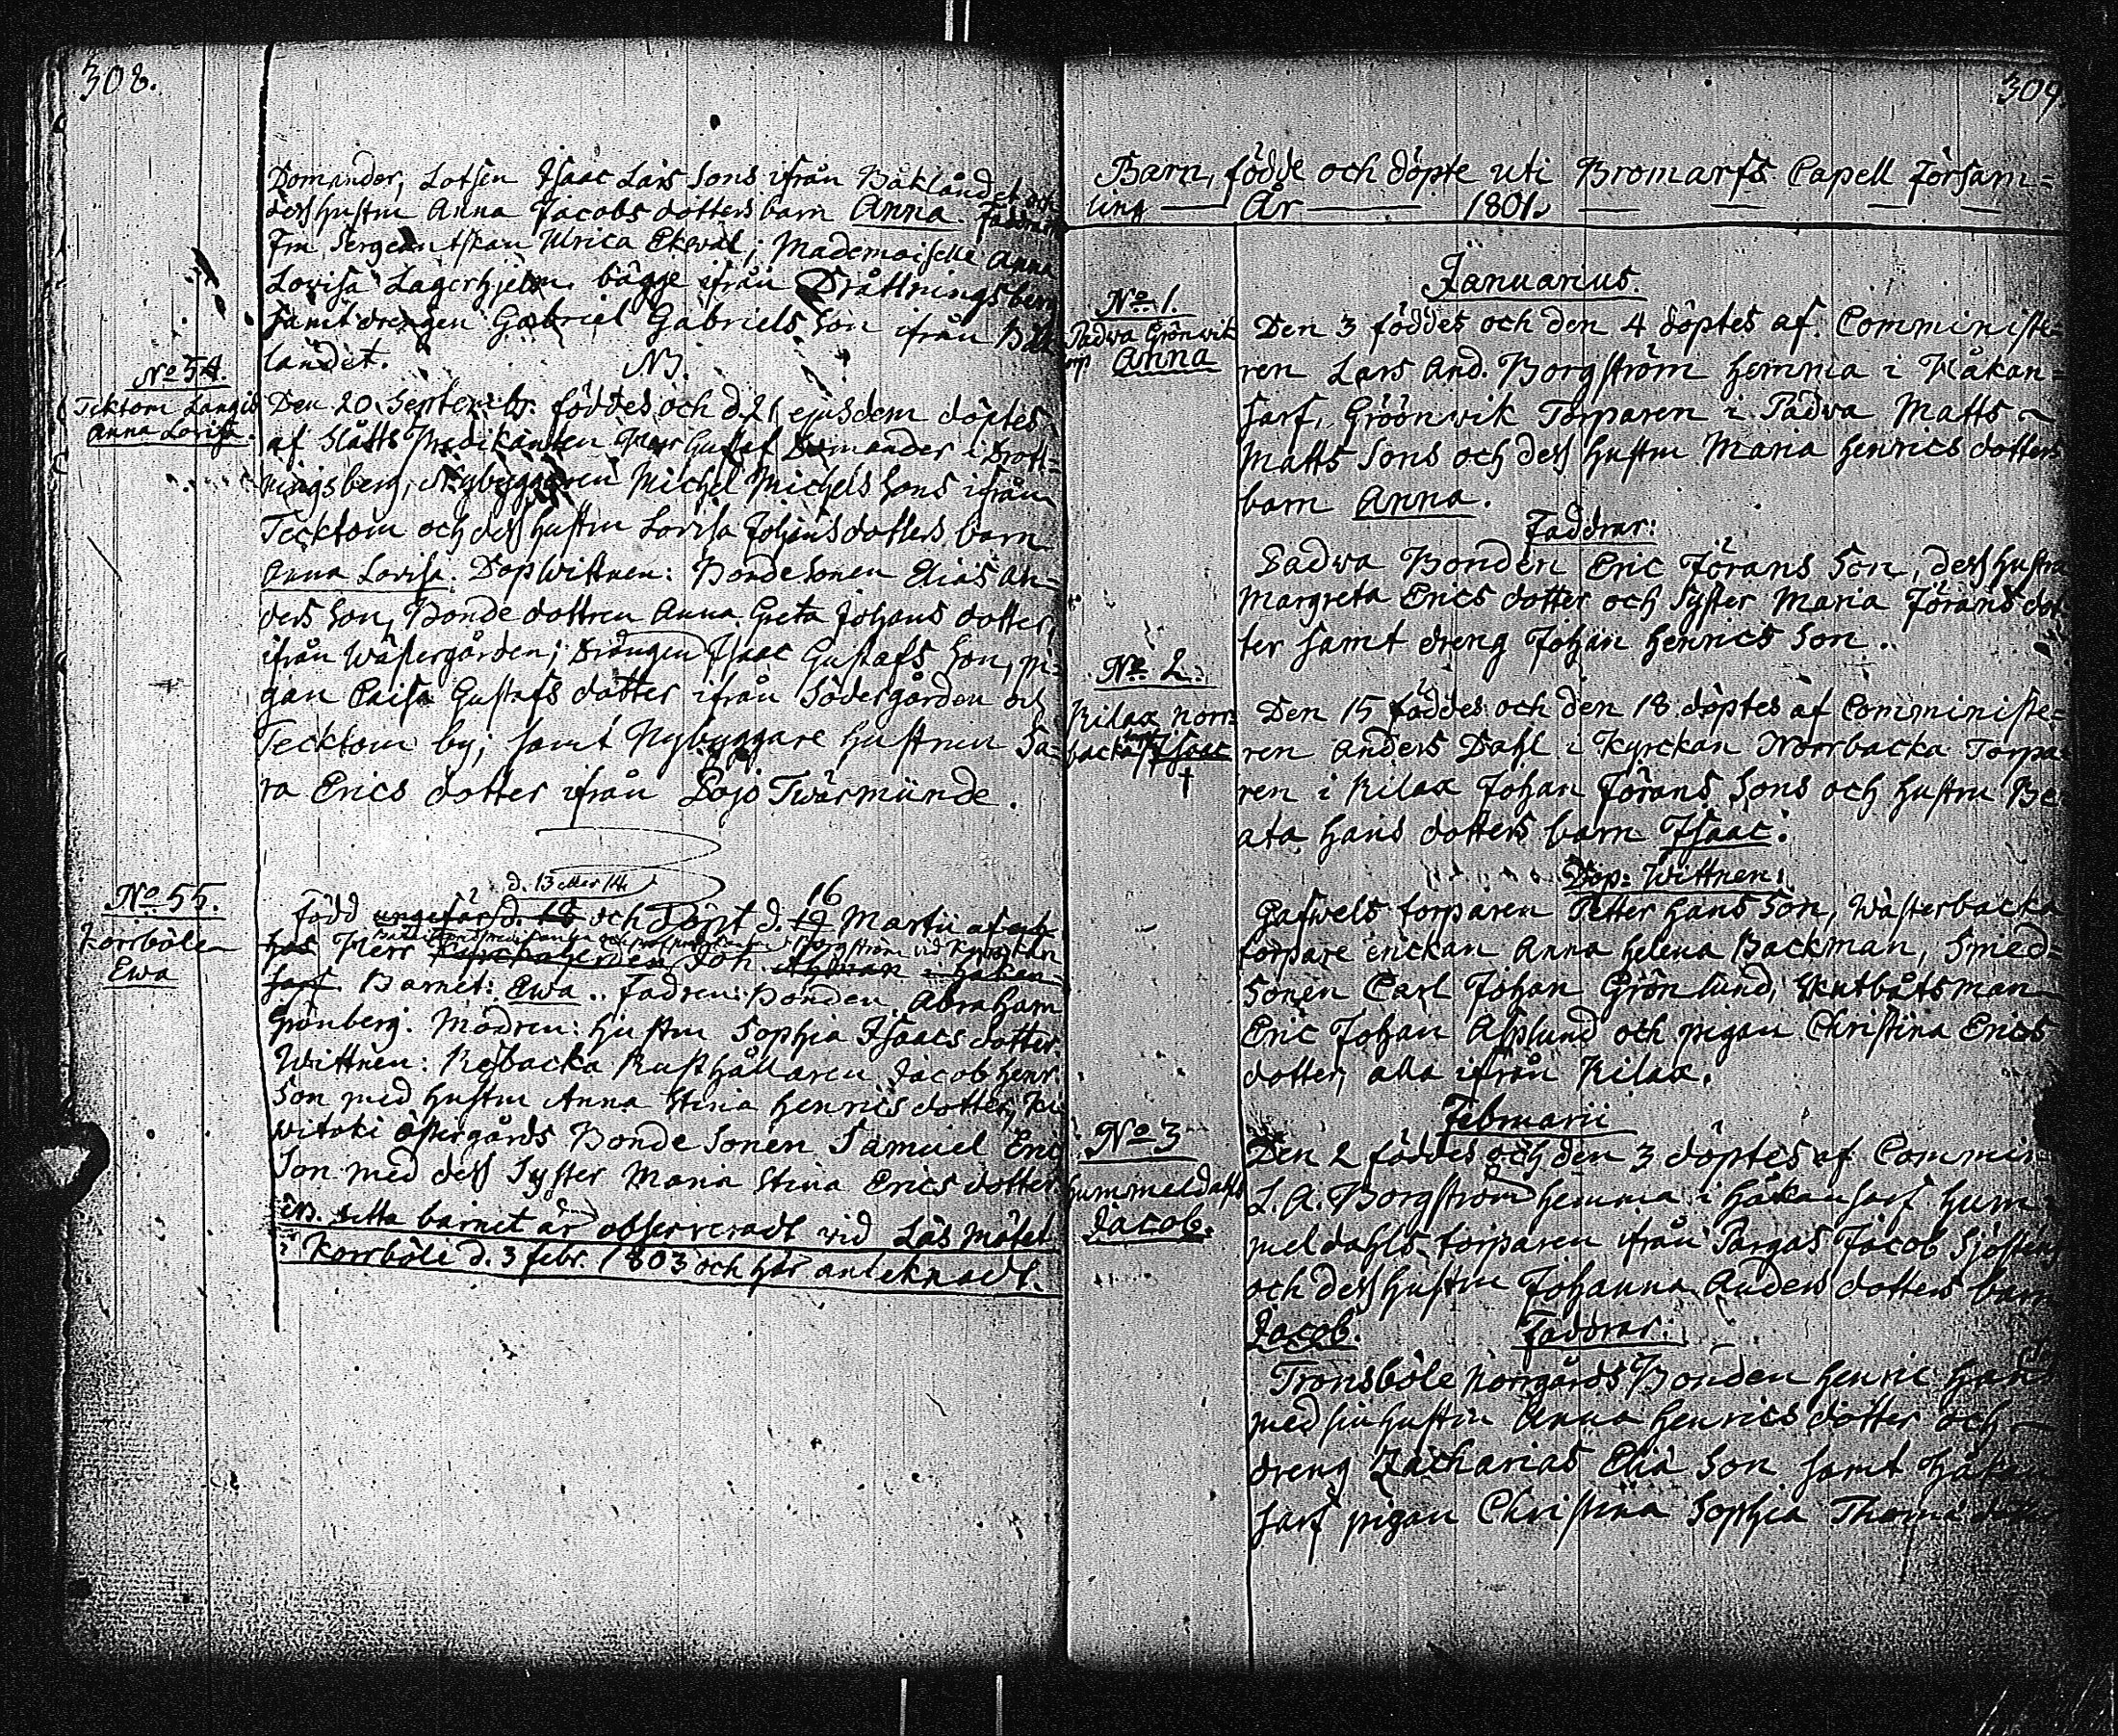 308.
Domander, Lotsen Isaac Lars Sons ifrån Båklandet och
dess hustru Anna Jacobs dotters barn Anna. Faddrar
Fru Sergeantskan Ulrica Ekwal; Mademoiselle Anna
Lovisa Lagerhjelm bägge ifrån Dråttningsberg
samt drengen Gabriel Gabriels Son ifrån Båk
landet. NB.
No 54.
Tecktom Langis
Anna Lovisa.
Den 20 Septembr. föddes och d. 21 ejusdem döptes
af Slåtts Predikanten Herr Gustaf Domander i Drott-
ningsberg, Nybyggaren Michel Michels Sons ifrån
Tecktom och dess hustru Lovisa Johans dotters barn
Anna Lovisa. Dopwittnen: Bondesonen Elias An-
ders Son, Bonde dottren Anna Greta Johans dotter,
ifrån Wästergården; Drängen Isaac Gustafs Son, pi-
gan Caisa Gustafs dotter ifrån Södergården och
Tecktom by; samt Nybyggare hustrun Sa-
ra Erics dotter ifrån Pojo Twärmünde.
No 55.
Korrböle
Ewa
d. 13 eller 14. 16
född ungefär d. 18 och Döpt d. 19 Martii af
hos Herr Joh. Borgström vid Kyrckan
sarf. Barnet: Ewa. Fadren: Bonden Abraham
Grönberg. Modren: Hustru Sophia Isaacs dotter.
Wittnen: Resbacka Rusthållaren Jacob Henr.
Son med hustru Anna Stina Henrics dotter, Ki
witoki östergårds Bonde Sonen Samuel Eric
Son med dess Syster Maria Stina Erics dotter
NB. Detta barnet är observeradt vid Läs mötet
i Korrböle d. 3 febr. 1803 och här anteknadt.
309
Barn, födde och döpte uti Bromarfs Capell Församl=
ling — År — 1801. — — — —
Januarius.
No 1.
Padwa Grönwik
Anna
Den 3 föddes och den 4 döptes af Comministe-
ren Lars And. Borgström hemma i Håkan=
sarf, Gröönwik Torparen i Padwa Matts
Matts Sons och dess hustru Maria Henrics dotters
barn Anna.
Faddrar:
Padwa Bonden Eric Jörans Son, dess hustru
Margreta Erics dotter och Syster Maria Jörans dot
ter samt dreng Johan Henrics Son.
No 2.
Kilax Norr=
backa Isaac
†
Den 15 föddes och den 18 döptes af Comministe=
ren Anders Dahl i Kyrckan Norrbacka Torpa
ren i Kilax Johan Jörans Sons och hustru Be
ata Hans dotters barn Isaac.
Dop: Wittnen:
Gafwels torparen Petter Hans Son, Wästerbacka
torpare enckan Anna Helena Backman, Smed-
Sonen Carl Johan Grönlund, Skutbåtsman
Eric Johan Asplund och pigan Christina Erics
dotter, alla ifrån Kilax.
Februarii
No 3
Hummeldahls
Jacob.
Den 2 föddes och den 3 döptes af Commin
L. A. Borgström hemma i Håkansarf Hum
meldahls torparen ifrån Pargas Jacob Sjöstens
och dess hustru Johanna Anders dotters barn
Jacob. Faddrar:
Tronsböle Norrgårds Bonden Henric Hans
med sin hustru Anna Henrics dotter och
dreng Zacharias Elia Son samt Håkan
sarf pigan Christina Sophia Thoma